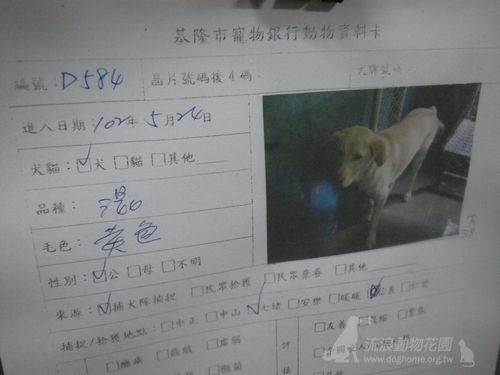 基隆市寵物銀行動物資料卡
編號：D584 晶片號碼後4碼： 犬牌號碼
進入日期：102年5月24日
犬貓：☑犬 □貓 □其他
品種：混
毛色：黃色
性別：☑公 □母 □不明
來源：☑捕犬隊捕捉 □民眾拾獲 □民眾棄養 □其他
捕捉/拾獲地點：□中正 □中山 ☑七堵 □安樂 □暖暖 信義 □仁愛
□友善 □緊張
流浪動物花園
www.doghome.org.tw